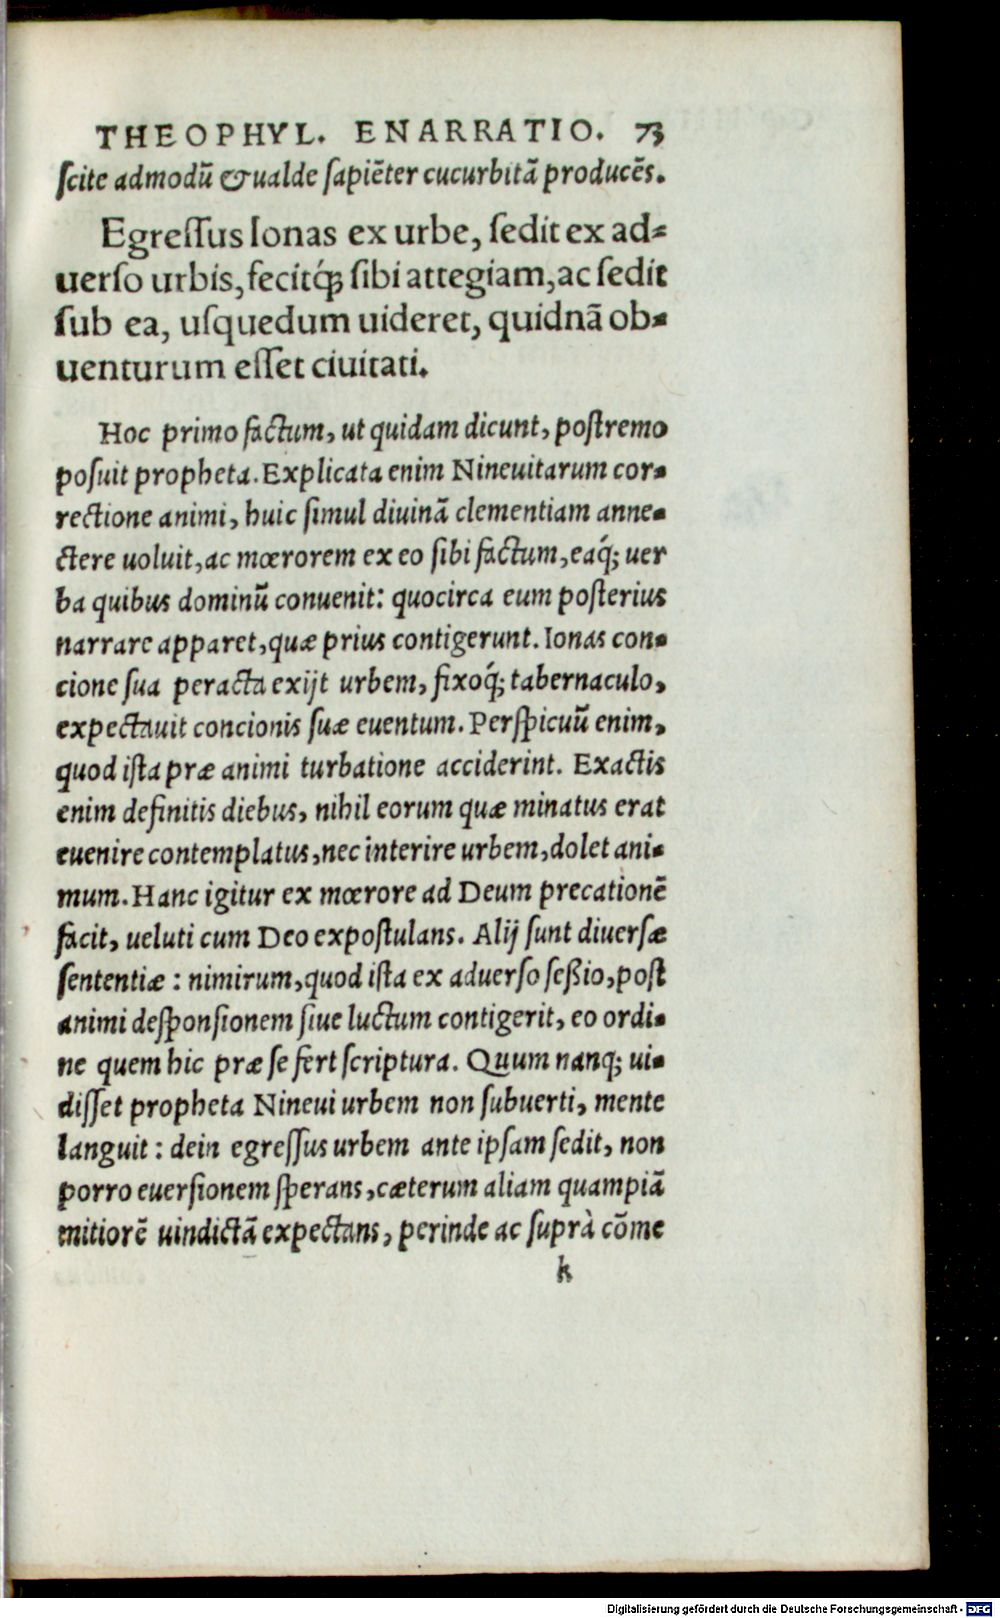 THEOPHYL. ENARRATIO. 73
ſcite admodū & ualde ſapiēter cucurbitā producēs.
Egreſſus Ionas ex urbe, ſedit ex ad⸗
uerſo urbis, fecitq́ꝫ ſibi attegiam, ac ſedit
ſub ea, uſquedum uideret, quidnā ob⸗
uenturum eſſet ciuitati.
Hoc primo factum, ut quidam dicunt, poſtremo
poſuit propheta. Explicata enim Nineuitarum cor⸗
rectione animi, huic ſimul diuinā clementiam anne⸗
ctere uoluit, ac mœrorem ex eo ſibi factum, eaq́; uer
ba quibus dominū conuenit: quocirca eum poſterius
narrare apparet, quæ prius contigerunt. Ionas con⸗
cione ſua peracta exijt urbem, fixoq́; tabernaculo,
expectauit concionis ſuæ euentum. Perſpicuū enim,
quod iſta præ animi turbatione acciderint. Exactis
enim definitis diebus, nihil eorum quæ minatus erat
euenire contemplatus, nec interire urbem, dolet ani⸗
mum. Hanc igitur ex mœrore ad Deum precationē
facit, ueluti cum Deo expoſtulans. Alij ſunt diuerſæ
ſententiæ: nimirum, quod iſta ex aduerſo ſeßio, poſt
animi deſponſionem ſiue luctum contigerit, eo ordi⸗
ne quem hic præ ſe fert ſcriptura. Quum nanq; ui⸗
diſſet propheta Nineui urbem non ſubuerti, mente
languit: dein egreſſus urbem ante ipſam ſedit, non
porro euerſionem ſperans, cæterum aliam quampiā
mitiorē uindictā expectans, perinde ac ſuprà cōme
k
Digitalisierung gefördert durch die Deutsche Forschungsgemeinschaft - DFG